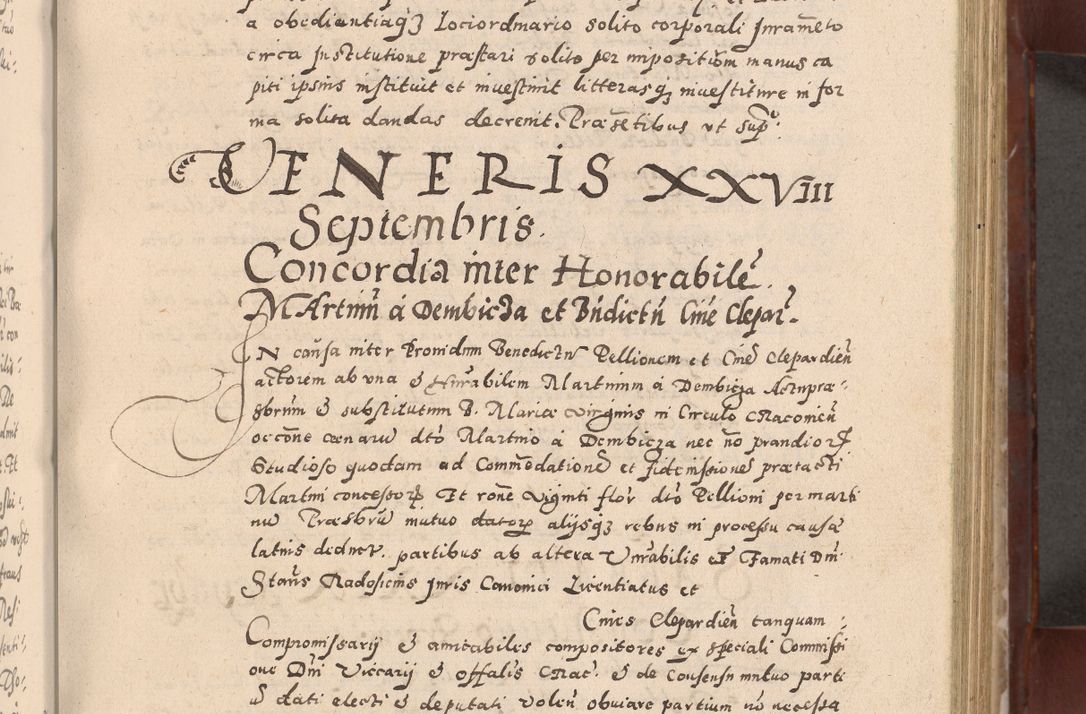 a obedientiaqʒ Lociordinario solito corporali Jurameto
circa Institutione præstari solito per impositiom manus ca
piti ipsius instituit et investivit litterasqʒ investiture in for
ma solita dandas decrevit. Præsetibus ut sup.
VENERIS XXVIII
Septembris.
Concordia inter Honorabile.
MArtinu á Dembicza et Bndictu Cive Clepar.
IN causa inter Providum Benedictu Pellionem et Cive Clepardien
actorem ab una & Hnrabilem Martinum á Dembicza Actu præ-
sbrum & substitutum B. Mariæ virginis in Circulo Cracovien
occone cænaru dto Martino á Dembicza nec no prandior
Studioso quodam ad Commedatione et fideiussione prætacti
Martini concessor Et rone viginti flor dto Pellioni per marti
nu Præsbru mutuo dator alijsqʒ rebus in processu causæ
latius deduct. partibus ab altera Vnrabilis et Famati Dni
Stanis Radosicius Juris Canonici Licentiatus et
Cives Clepardien tanquam
Compromissarij & amicabiles compositores ex speciali Commissi
one Dni Vicarij & offalis Crac. & de consensu mutuo parti
u dati electi & deputati Volen obviare partium no necessa